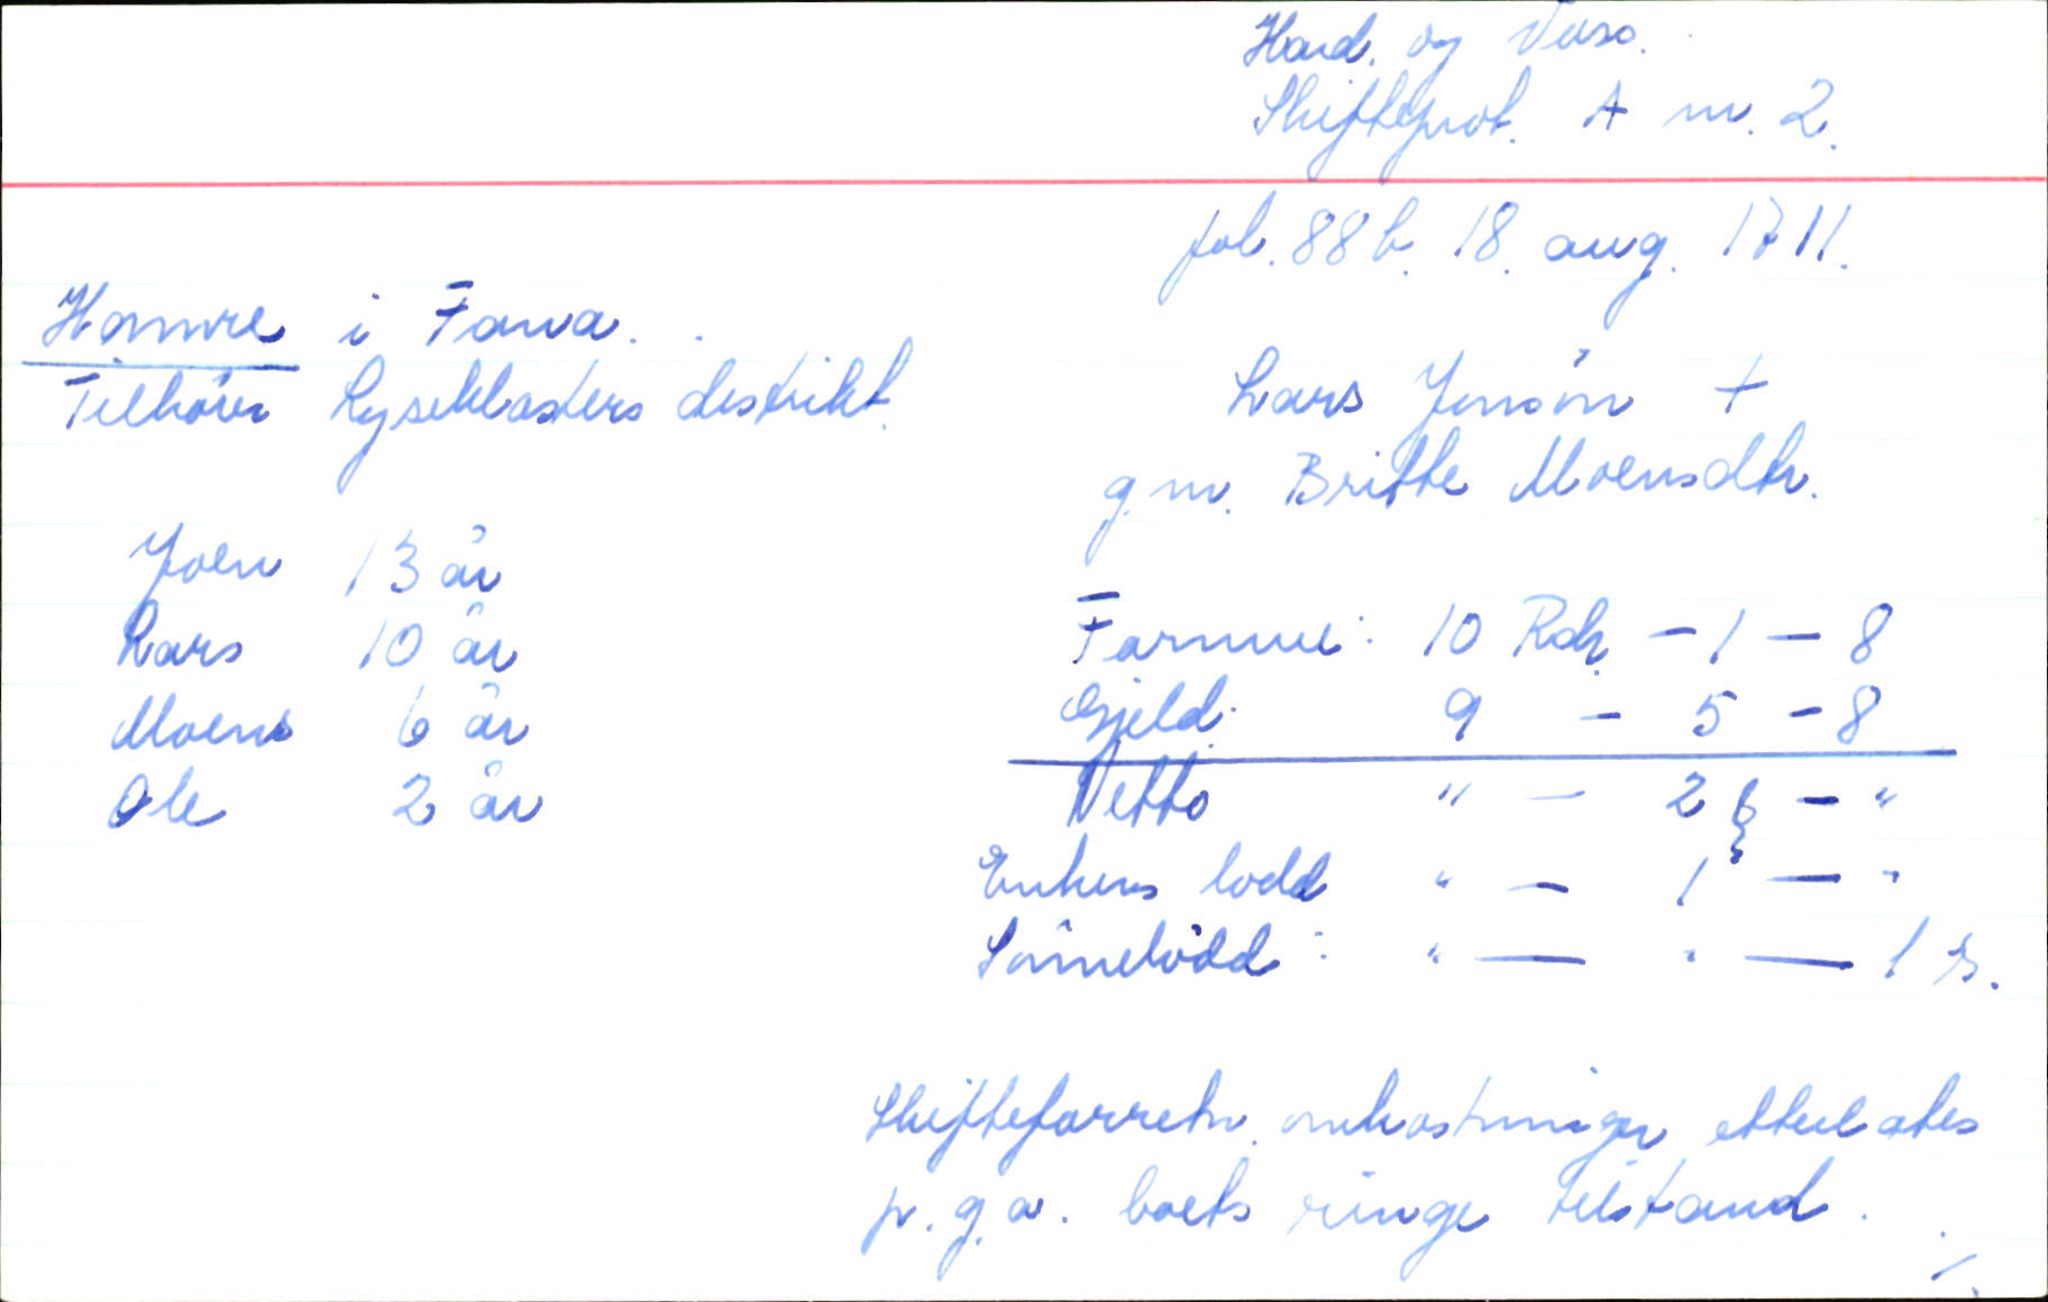 Hard. og Voss.
Skifteprot. A nr. 2.
fol. 88 b. 18. aug. 1711.
Hamre i Fana.
Tilhører Lyseklosters distrikt.
Lars Jonsøn +
g.m. Britte Moensdtr.
Joen 13 år
Lars 10 år
Moens 6 år
Ole 2 år
Formue: 10 Rdr. - 1 - 8
Gjeld: 9 - 5 - 8
Netto " - 2 ß - "
Enkens lodd " - 1 - "
Sønnelodd: " - " - 1 s.
Skifteforretn. omkostninger etterlates
p.g.a. boets ringe tilstand.